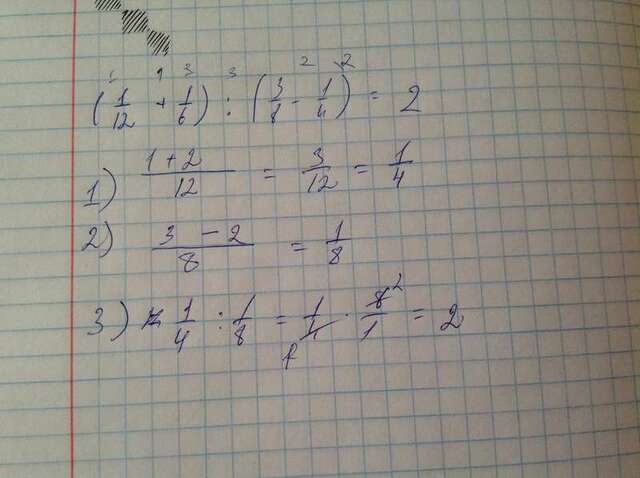 (1/12 + 1/6) : (3/8 - 1/4) = 2
1) (1+2)/12 = 3/12 = 1/4
2) (3 - 2)/8 = 1/8
3) 1/4 : 1/8 = 1/4 · 8/1 = 2